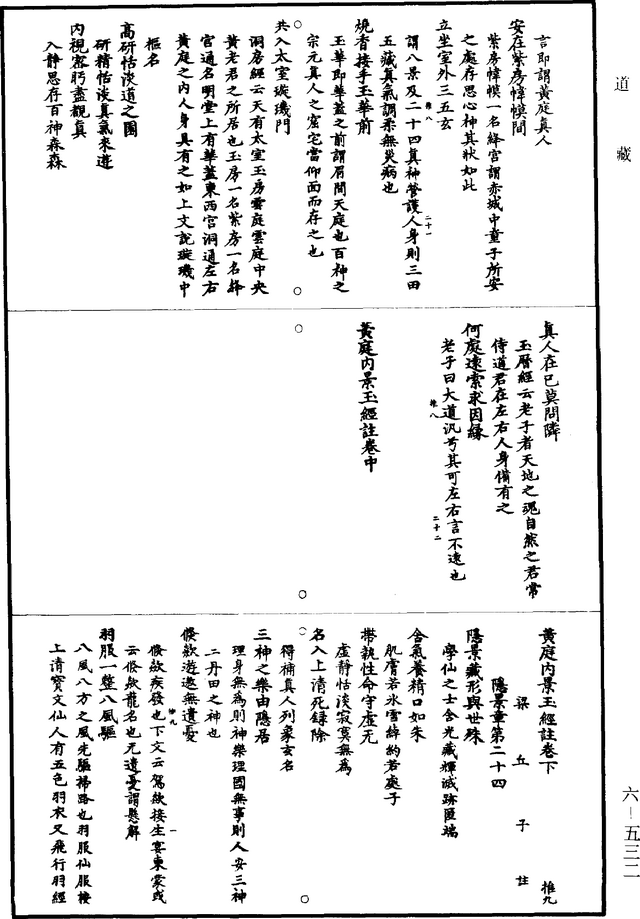 道藏
言即謂黃庭真人
安在紫房幃幙間
紫房幃幙一名絳宮謂赤城中童子所安
之處存思心神其狀如此
立坐室外三五玄
謂八景及二十四真神營護人身則三田
五藏真氣調柔無災病也
燒香接手玉華前
玉華即華蓋之前謂眉間天庭也百神之
宗元真人之窟宅當仰面而存之也
共入太室璇璣門
洞房經云天有太室玉房雲庭雲庭中央
黃老君之所居也玉房一名紫房一名絳
宮通名明堂上有華蓋東西宮洞通左右
黃庭之内人身具有之如上文說璇璣中
樞名
高研恬淡道之園
研精恬淡真氣來遊
内視密眄盡觀真
入静思存百神森森
真人在己莫問隣
玉曆經云老子者天地之魂自然之君常
侍道君在左右人身備有之
何處遠索求因緣
老子曰大道汎兮其可左右言不遠也
推八
二十一
推八
二十二
黃庭内景玉經註卷中
黃庭内景玉經註卷下
推九
梁丘子註
隱景章第二十四
隱景藏形與世殊
學仙之士含光藏輝滅跡匿端
含氣養精口如朱
肌膚若冰雪綽約若處子
帶執性命守虛无
虛静恬淡寂寞無為
名入上清死録除
得補真人列象玄名
三神之樂由隱居
理身無為則神樂理國無事則人安三神
二丹田之神也
倏歘遊遨無遺憂
倏歘疾發也下文云駕歘接生宴東蒙或
云倏歘龍名也无遺憂謂懸解
推九
一
羽服一整八風驅
八風八方之風先驅掃路也羽服仙服按
上清寶文仙人有五色羽衣又飛行羽經
六—五三二